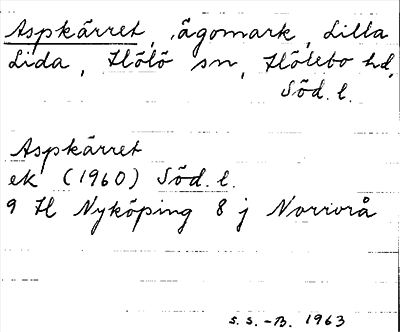 Aspkärret, ägomark, Lilla
Lida, Hölö sn, Hölebo hd,
Söd. l.
Aspkärret
ek (1960) Söd. l.
9 H Nyköping 8 j Norrvrå
s.s.-B. 1963